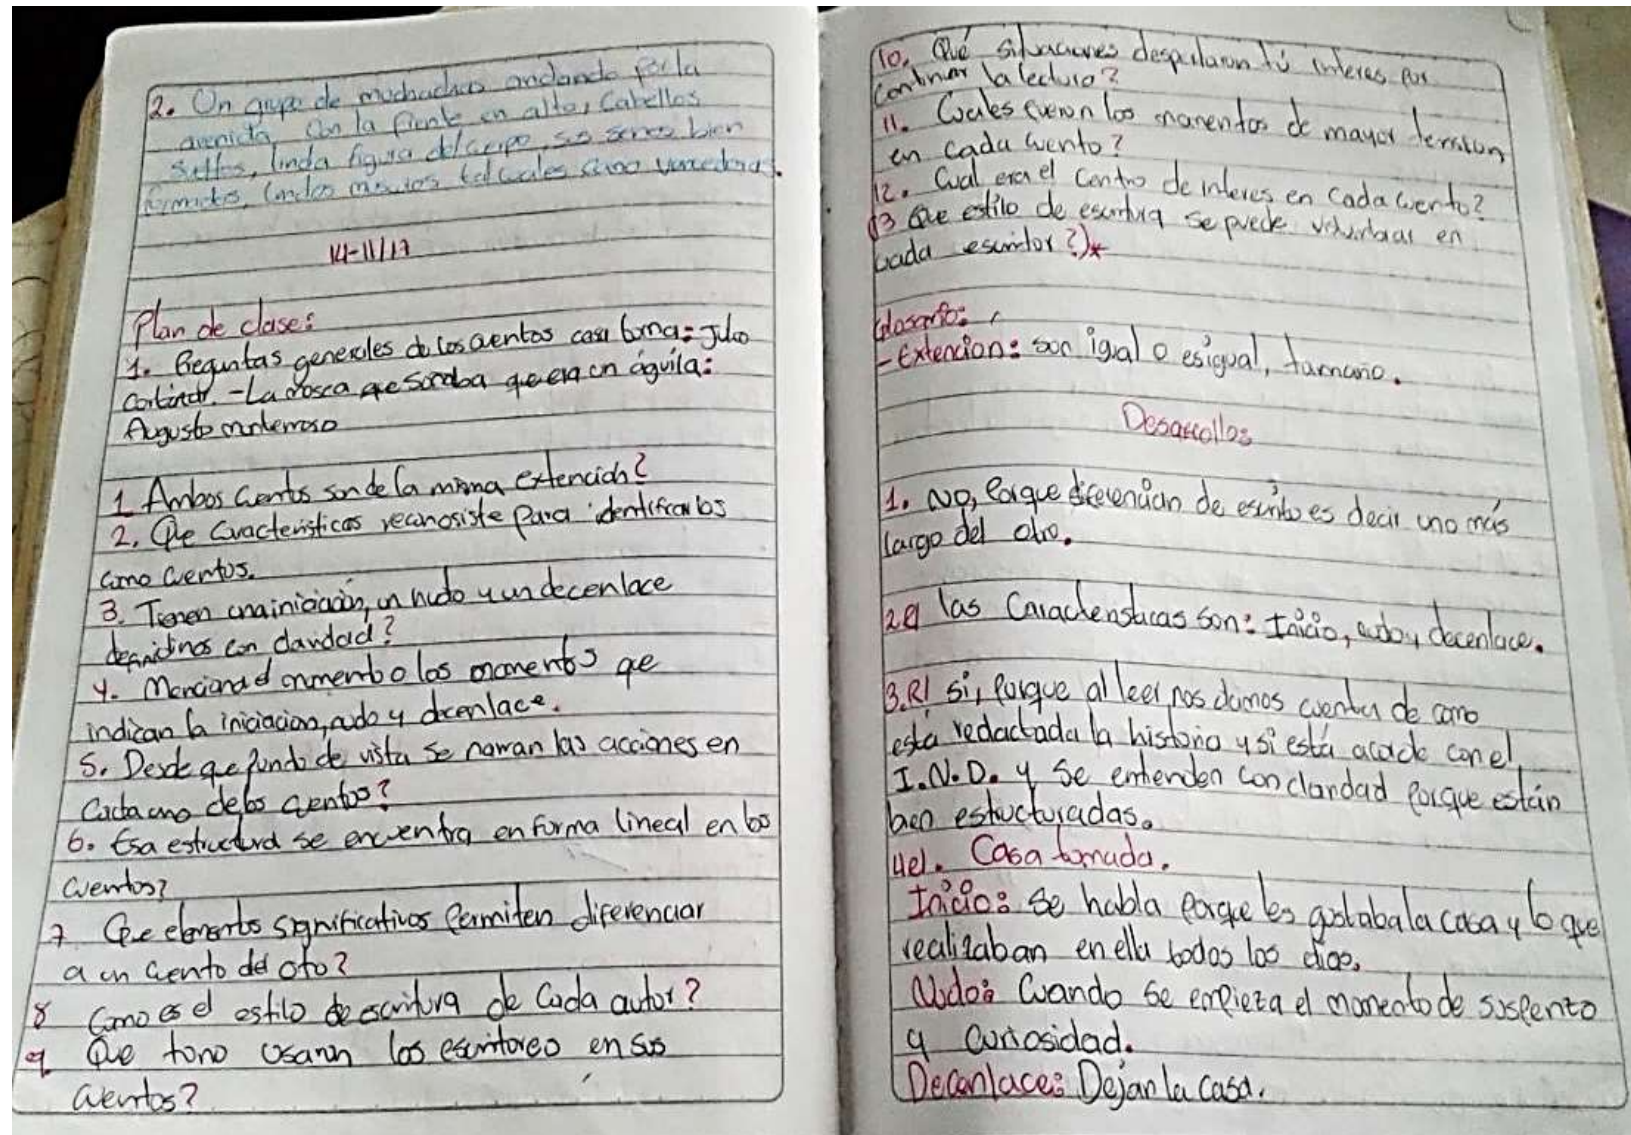 2. Un grupo de muchachas andando por la
avenida, con la frente en alto, Cabellos
sueltos, linda figura del cuerpo, sus senos bien
formados, tal cuales como vencedoras.
14-11/17
Plan de clase:
1. Preguntas generales de los cuentos casa toma: Julio
cortázar. -La mosca que soñaba que era un águila:
Augusto monterroso
1 Ambos Cuentos son de la misma extención?
2. Que Características reconosiste para identificarlos
como cuentos.
3. Tienen una iniciación, un nudo y un decenlace
definidos con claridad?
4. Menciona el momento o los momentos que
indican la iniciacion, nudo y decenlace.
5. Desde que punto de vista se narran las acciones en
Cada uno de los cuentos?
6. Esa estructura se encuentra en forma lineal en los
cuentos?
7 Que elementos significativos permiten diferenciar
a un cuento del otro?
8 Como es el estilo de escritura de Cada autor?
9 Que tono usaron los escritores en sus
cuentos?
10. Qué situaciones despertaron tú interes por
continuar la lectura?
11. Cuales fueron los momentos de mayor tension
en cada cuento?
12. Cual era el Centro de interes en Cada cuento?
13 Que estilo de escritura se puede en
cada escritor?)*
Glosario:
-Extencion: son igual o es igual, tamaño.
Desarrollo:
1. No, Porque diferencian de escrito es decir uno más
largo del otro.
2R las Características son: Inicio, nudo y decenlace.
3.R/ Si, Porque al leer nos damos cuenta de como
está redactada la historia y si está acorde con el
I.N.D. y Se entienden con claridad porque están
bien estructuradas.
4R/. Casa tomada.
Inicio: Se habla porque les gustaba la casa y lo que
realizaban en ella todos los días.
Nudo: Cuando se empieza el momento de suspenso
y curiosidad.
Decenlace: Dejan la casa.